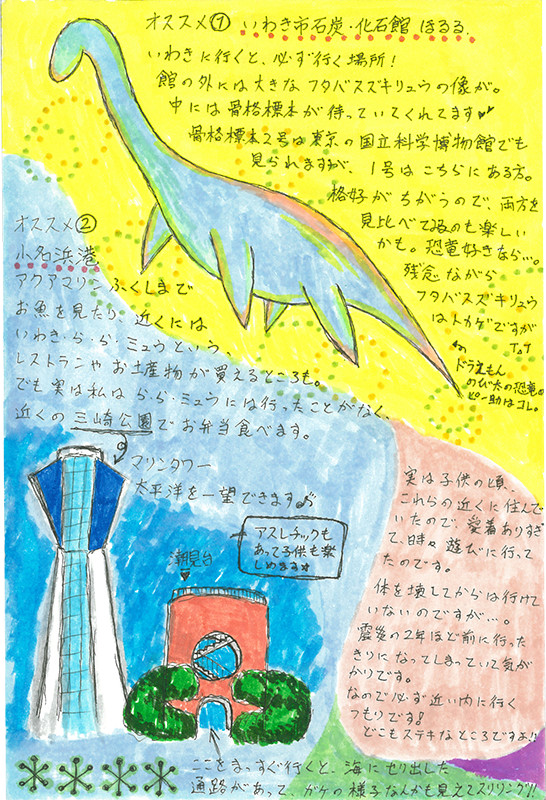 オススメ① いわき市石炭・化石館 ほるる.
いわきに行くと、必ず行く場所！
館の外には大きなフタバスズキリュウの像が。
中には骨格標本が待っていてくれてます
骨格標本2号は東京の国立科学博物館でも
見られますが、1号はこちらにある方。
格好がちがうので、両方を
見比べてみるのも楽しい
かも。恐竜好きなら…。
残念ながら
フタバスズキリュウ
はトカゲですが
T^T
ドラえもん
のび太の恐竜の
ピー助はコレ。
オススメ②
小名浜港
アクアマリンふくしまで
お魚を見たり、近くには
いわき・ら・ら・ミュウという、
レストランやお土産物が買えるところも。
でも実は私はら・ら・ミュウには行ったことがなく、
近くの三崎公園でお弁当食べます。
マリンタワー
太平洋を一望できます♪
アスレチックも
あって子供も楽
しめます
潮見台
実は子供の頃、
これらの近くに住んで
いたので、愛着ありすぎ
て、時々遊びに行って
たのです。
体を壊してからは行けて
いないのですが…。
震災の2年ほど前に行った
きりになってしまっていて気が
かりです。
なので必ず近い内に行く
つもりです!
どこもステキなところですよ!!
ここをまっすぐ行くと、海にせり出した
通路があって、ガケの様子なんかも見えてスリリング!!